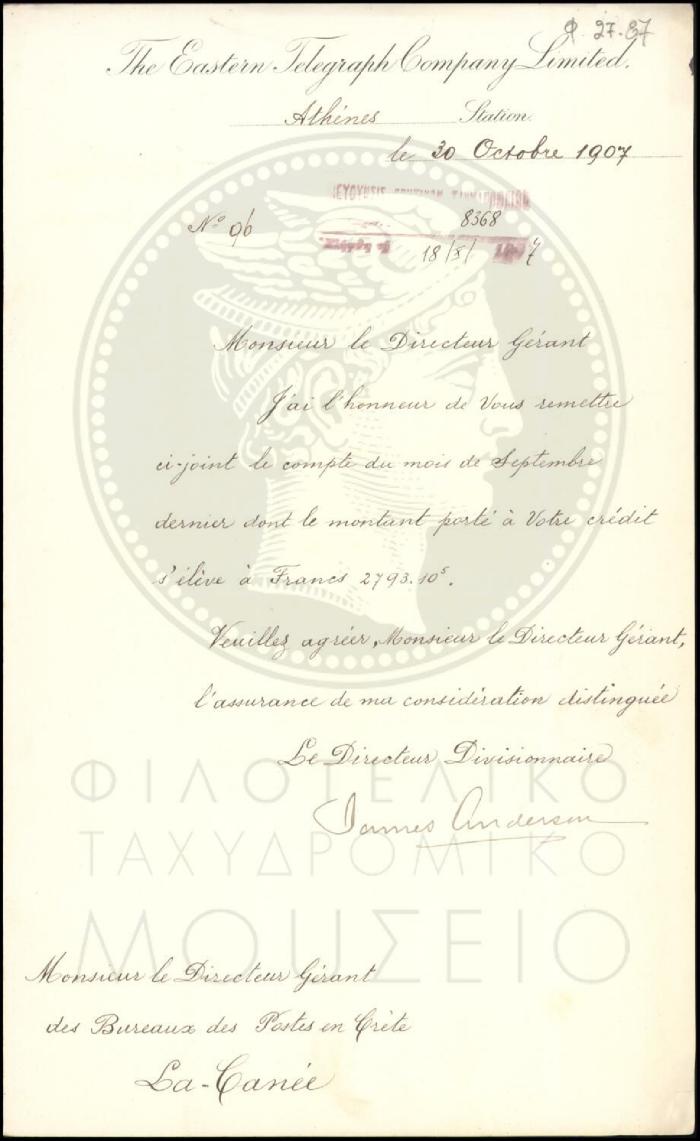 27.87
The Eastern Telegraph Company Limited.
Athènes Station.
le 30 Octobre 1907
N° 96
8368
18/X/ 1907
Monsieur le Directeur Gérant
J'ai l'honneur de Vous remettre
ci-joint le compte du mois de Septembre
dernier dont le montant porté à Votre crédit
s'élève à Francs 2793.10ˢ.
Veuillez agréer, Monsieur le Directeur Gérant,
l'assurance de ma considération distinguée
Le Directeur Divisionnaire
James Anderson
ΦΙΛΟΤΕΛΙΚΟ
ΤΑΧΥΔΡΟΜΙΚΟ
ΜΟΥΣΕΙΟ
Monsieur le Directeur Gérant
des Bureaux des Postes en Crète
La-Canée